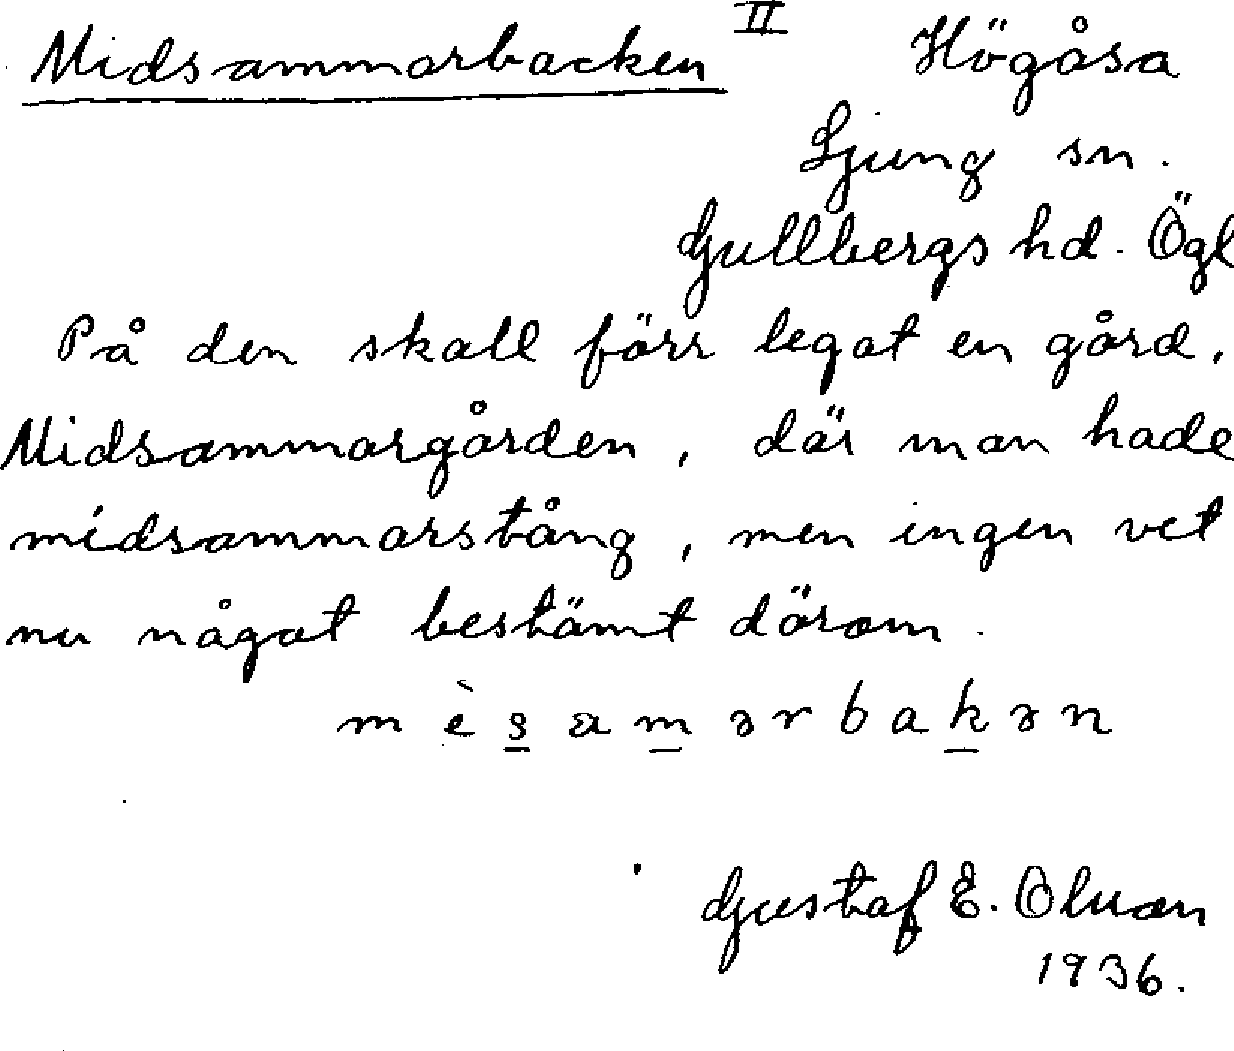 Midsommarbacken II Högåsa
Ljung sn.
Gullbergs hd. Ögl
På den skall förr legat en gård,
Midsommargården, där man hade
midsommarstång, men ingen vet
nu något bestämt därom.
mèsamərbakən
Gustaf E. Olsson
1936.